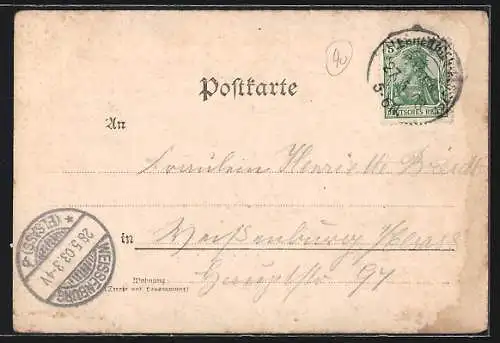 40
Postkarte
DEUTSCHES REICH
An
Fräulein Henriette
in Weißenburg Elsass
Wohnung
(Strasse und Hausnummer)
Hauptstr 97
WEISSENBURG
28.5.03.3-4V
* (ELSASS) *